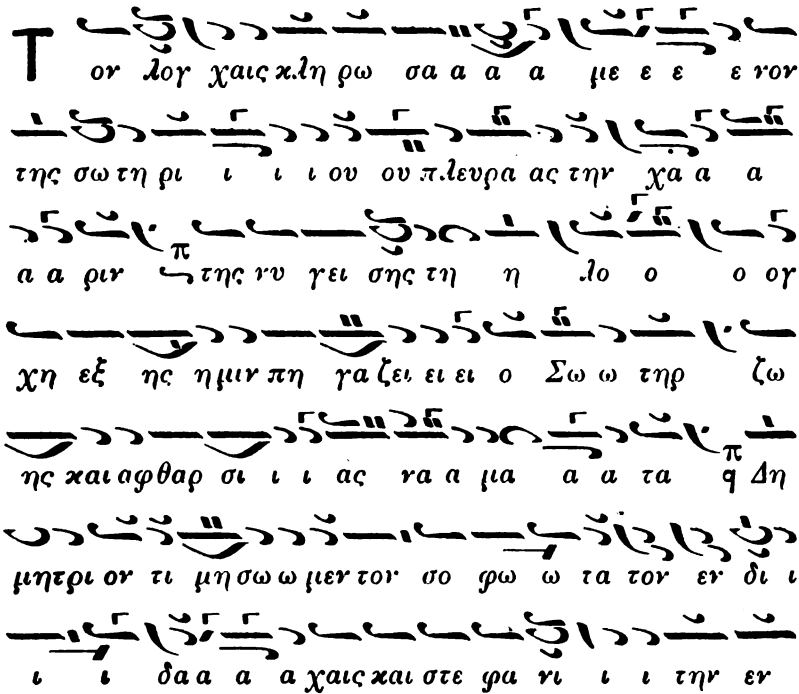 Τ ον λογ χαις κλη ρω σα α α α με ε ε ε νον
της σω τη ρι ι ι ι ου ου πλευρα ας την χα α α
α α ριν π της νυ γει σης τη η λο ο ο ογ
χη εξ ης ημιν πη γα ζει ει ει ο Σω ω τηρ ζω
ης και αφθαρ σι ι ι ας να α μα α α τα π q Δη
μητρι ον τι μη σω ω μεν τον σο φω ω τα τον εν δι ι
ι ι δα α α α χαις και στε φα νι ι ι την εν